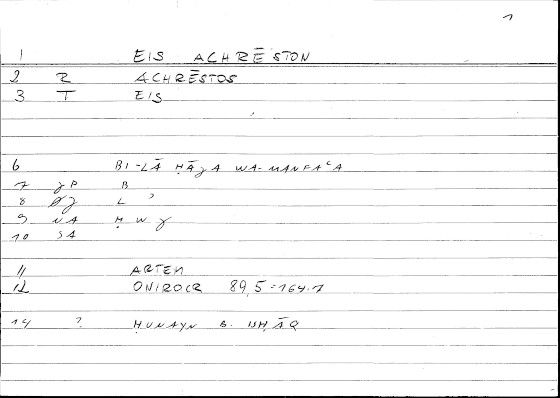 1
1 EIS ACHRĒSTON
2 R ACHRĒSTOS
3 T EIS
6 BI-LĀ ḤĀǧA WA-MANFAʿA
7 ǧP B
8 L ʾ
9 NA Ḥ W ǧ
10 SA
11 ARTEM
12 ONIROCR 89,5 = 164.1
14 ? ḤUNAYN B. ISḤĀQ